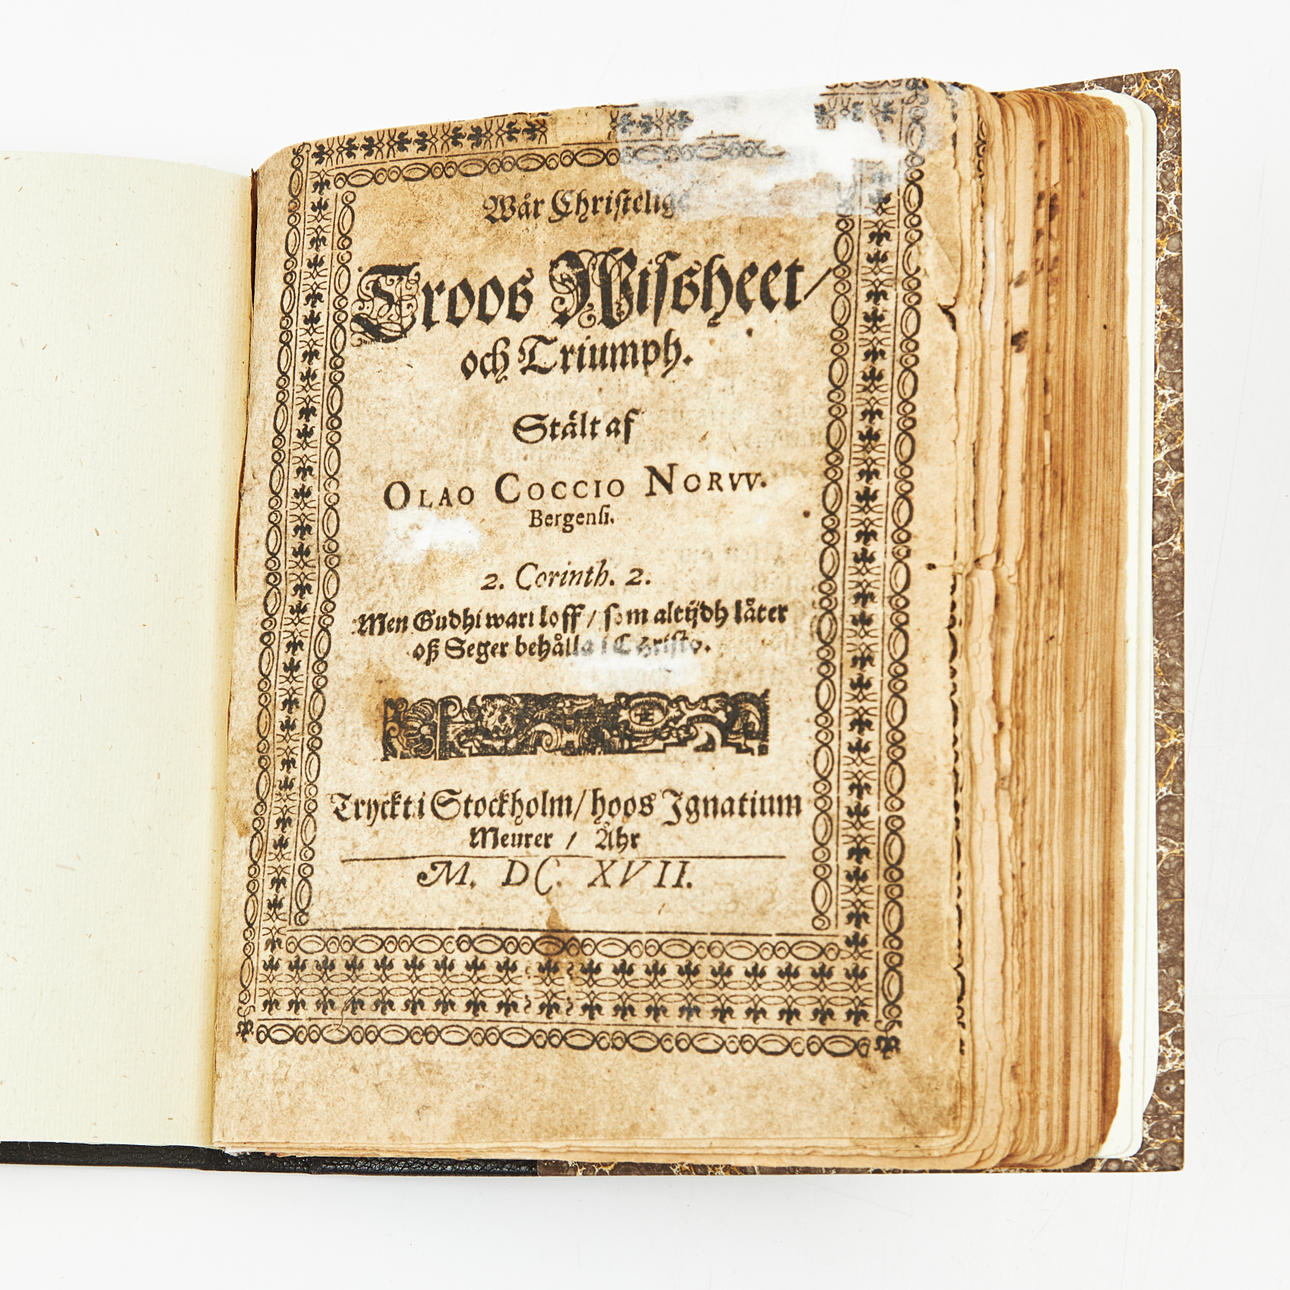 Wår Christelige
Troos Wissheet/
och Triumph.
Stält af
OLAO COCCIO NORVV.
Bergensi.
2. Corinth. 2.
Men Gudhi wari loff / som altijdh låter
oß Seger behålla i Christo.
Tryckt i Stockholm/ hoos Ignatium
Meurer / Åhr
M. DC. XVII.